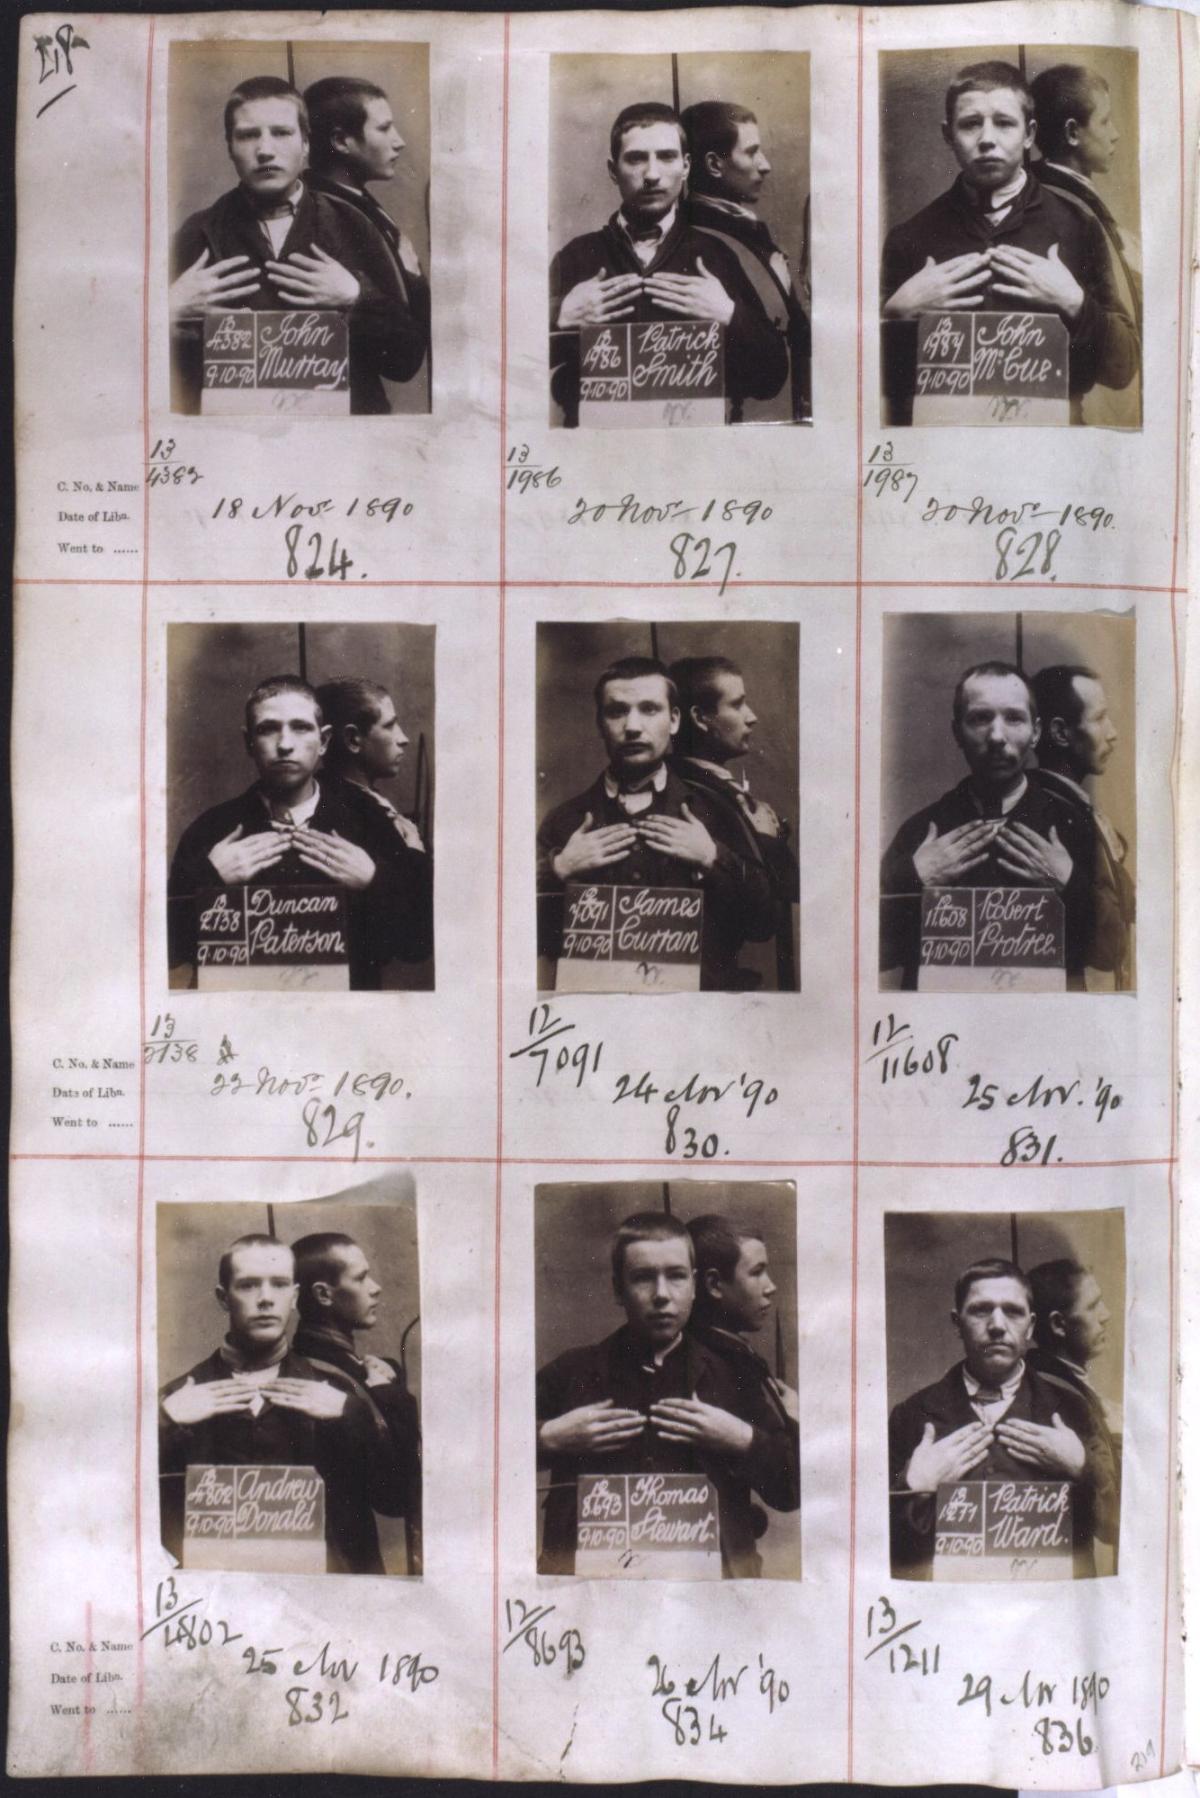 13
4382
9.10.90
John
Murray.
13
1986
9.10.90
Patrick
Smith
13
1987
9.10.90
John
McCue.
C. No. & Name
13
4382
13
1986
13
1987
Date of Libn.
18 Nov 1890
20 Nov 1890
20 Nov 1890.
Went to ......
824.
827.
828.
13
2138
9.10.90
Duncan
Paterson.
12
7091
9.10.90
James
Curran
12
11.608
9.10.90
Robert
Protree.
C. No. & Name
13
2138
12
7091
12
11608
Date of Libn.
22 Nov 1890.
24 Nov '90
25 Nov. '90
Went to ......
829.
830.
831.
13
4802
9.10.90
Andrew
Donald
12
8693
9.10.90
Thomas
Stewart.
13
9.10.90
Patrick
Ward.
C. No. & Name
13
4802
12
8693
13
1211
Date of Libn.
25 Nov 1890
26 Nov '90
29 Nov 1890
Went to ......
832
834
836